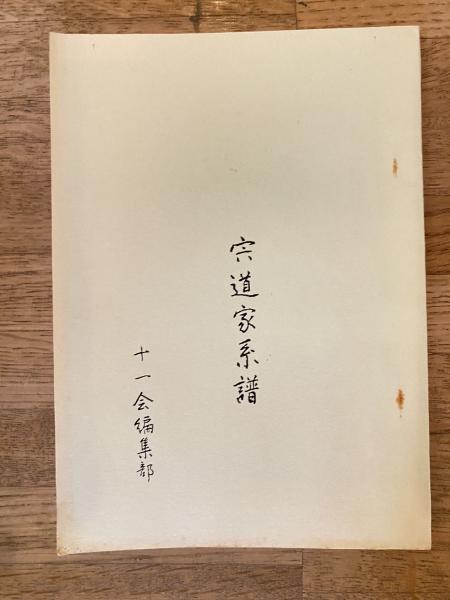 宍道家系譜
十一会編集部